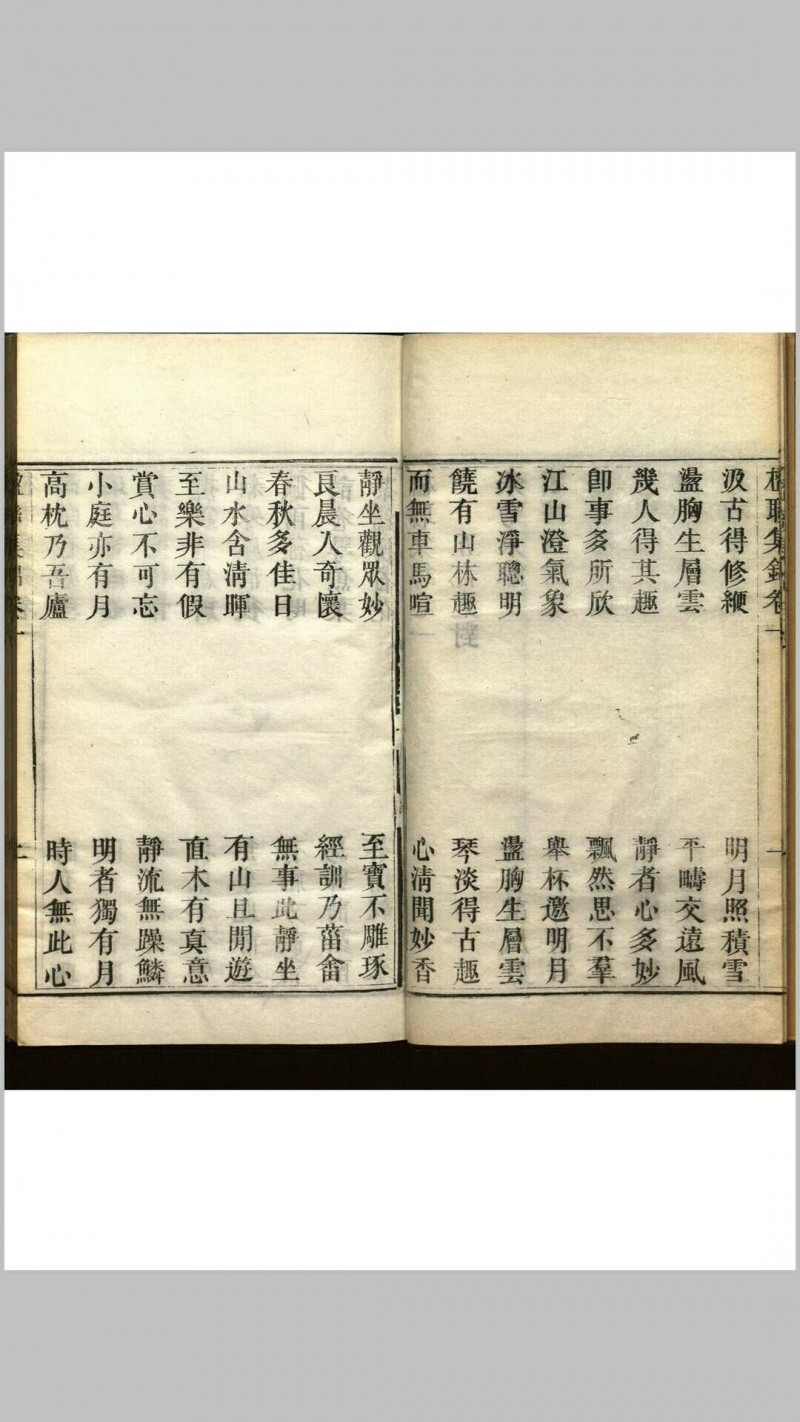 楹聯集錦卷一 一
汲古得修綆 明月照積雪
盪胸生層雲 平疇交遠風
幾人得其趣 靜者心多妙
卽事多所欣 飄然思不羣
江山澄氣象 舉杯邀明月
冰雪淨聰明 盪胸生層雲
饒有山林趣 琴淡得古趣
而無車馬喧 心淸聞妙香
靜坐觀眾妙 至寶不雕琢
良晨入奇懷 經訓乃菑畬
春秋多佳日 無事此靜坐
山水含淸暉 有山且閒遊
至樂非有假 直木有真意
賞心不可忘 靜流無躁鱗
小庭亦有月 明者獨有月
高枕乃吾廬 時人無此心